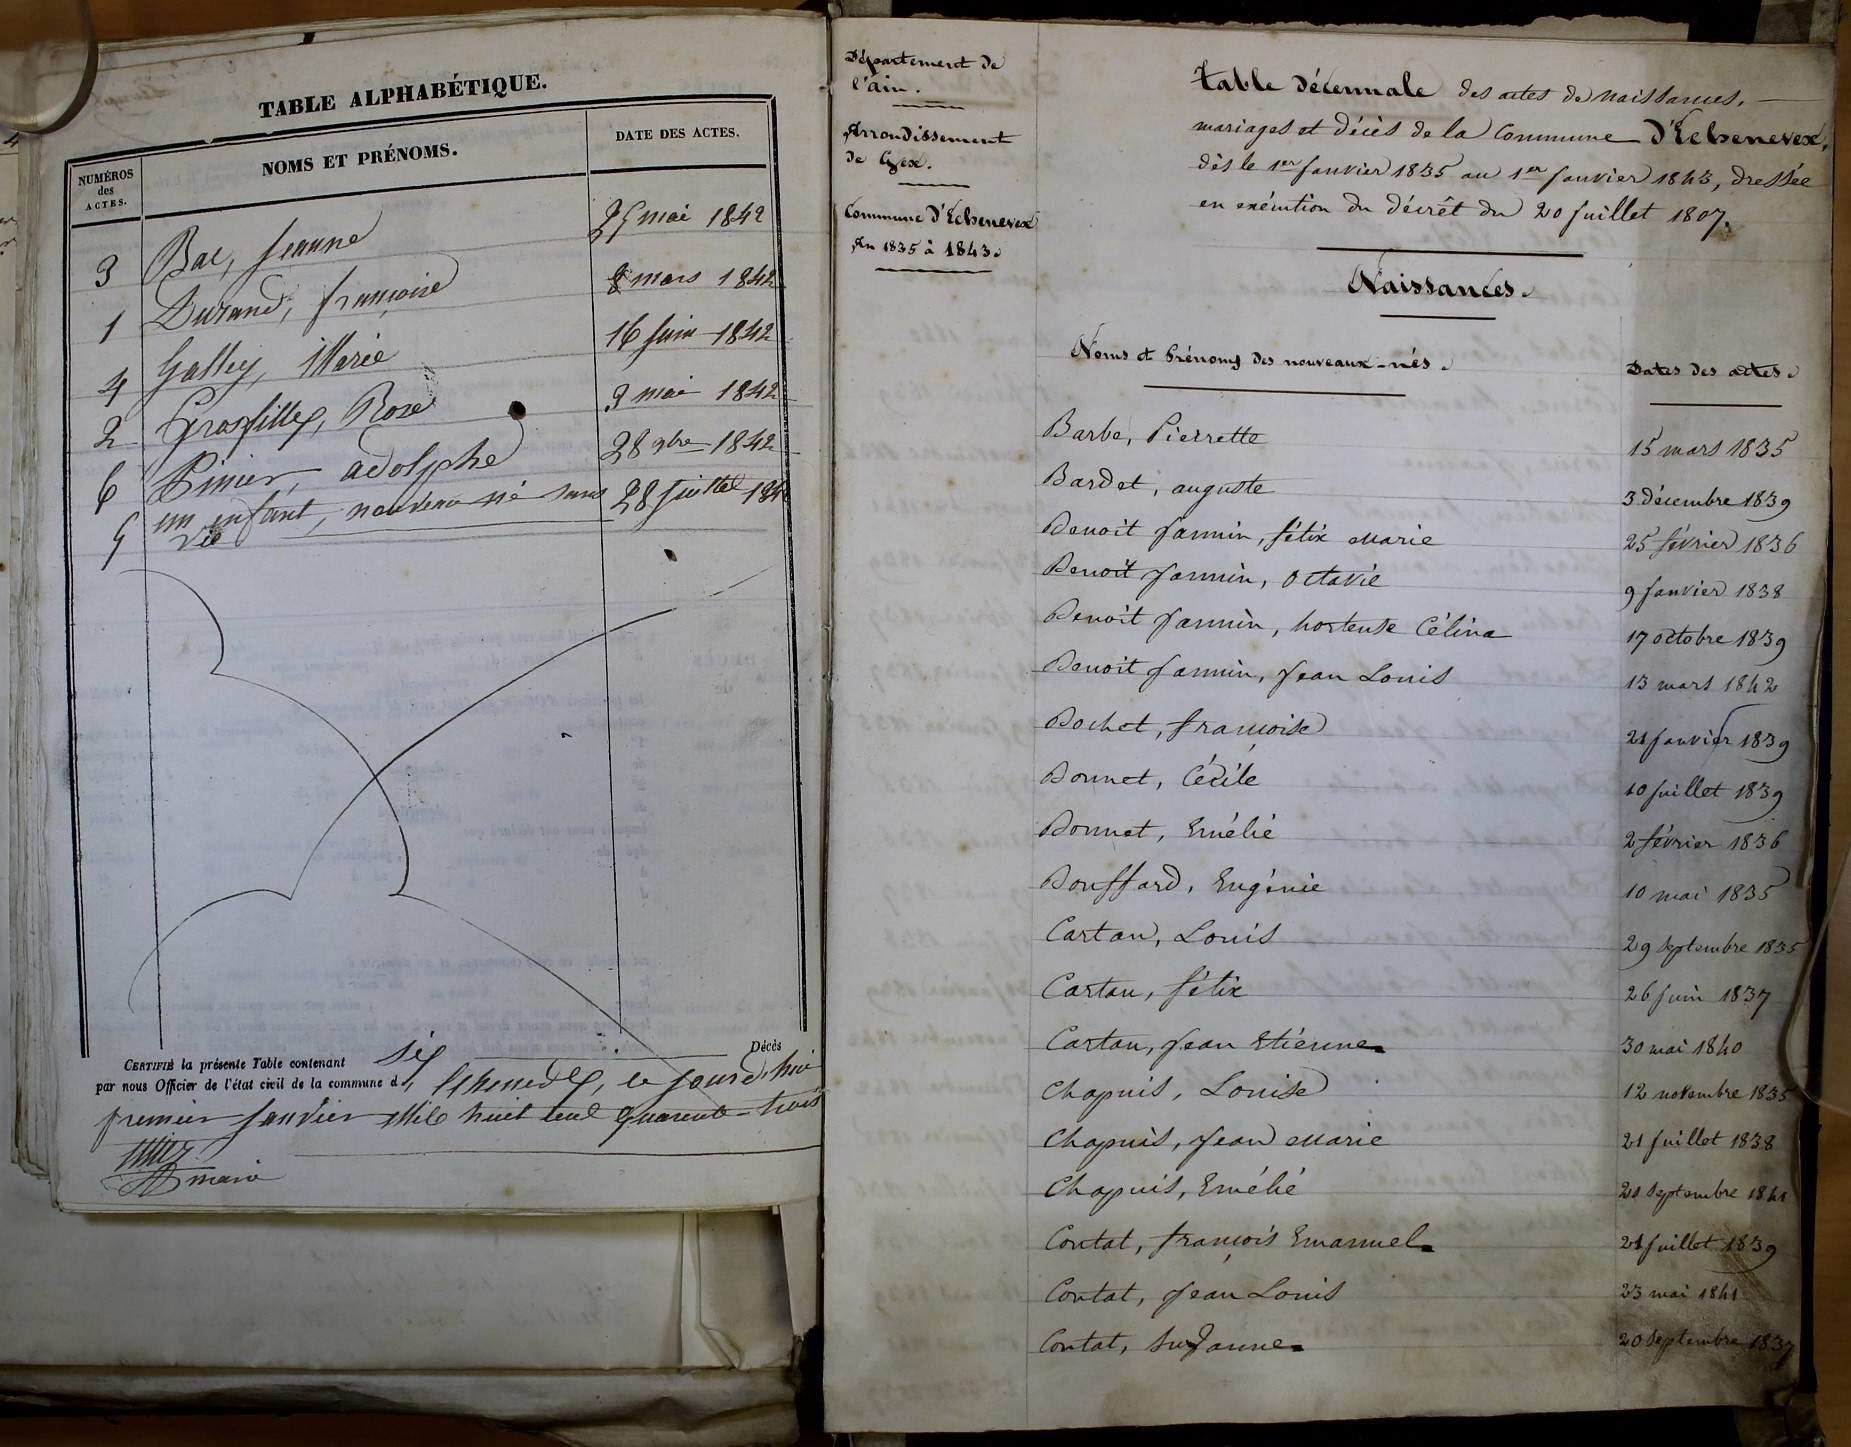 TABLE ALPHABÉTIQUE.
NUMÉROS
des
ACTES.
NOMS ET PRÉNOMS.
DATE DES ACTES.
3 Bac, Jeanne 25 mai 1842
1 Durand, françoise 8 mars 1842
4 Galley, Marie 16 Juin 1842
2 Grosfilley, Rose 3 mai 1842
6 Pinier, adolphe 28 9bre 1842
5 un enfant, nouveau né sans 28 Juillet 184
vie
CERTIFIÉ la présente Table contenant six Décès
par nous Officier de l'état civil de la commune d' Echenevex, ce jourd'hui
premier Janvier Mil huit cent quarente-trois
maire
Département de
l'ain.
Arrondissement
de Gex.
Commune D'Echenevex
An 1835 à 1843.
Table Décennale des actes de Naissances,
mariages et Décès de la Commune D'Echenevex,
dès le 1er Janvier 1835 au 1er Janvier 1843, dressée
en exécution du Décrêt du 20 Juillet 1807.
Naissances.
Noms et Prénoms des nouveaux-nés.
Dates des actes.
Barbe, Pierrette 15 mars 1835
Bardet, auguste 3 décembre 1839
Benoit Jannin, félix Marie 25 février 1836
Benoit Jannin, Octavie 9 Janvier 1838
Benoit Jannin, hortense Célina 17 octobre 1839
Benoit Jannin, Jean Louis 13 mars 1842
Bochet, françoise 21 Janvier 1839
Bonnet, Cécile 10 Juillet 1839
Bonnet, Emélie 2 février 1836
Bouffard, Eugénie 10 mai 1835
Cartan, Louis 29 Septembre 1835
Cartan, félix 26 Juin 1837
Cartan, Jean Etiénne 30 mai 1840
Chapuis, Louise 12 novembre 1835
Chapuis, Jean Marie 21 Juillet 1838
Chapuis, Emélie 21 Septembre 1841
Contat, françois Emanuel 21 Juillet 1839
Contat, Jean Louis 23 mai 1841
Contat, Suzanne 20 Septembre 1837